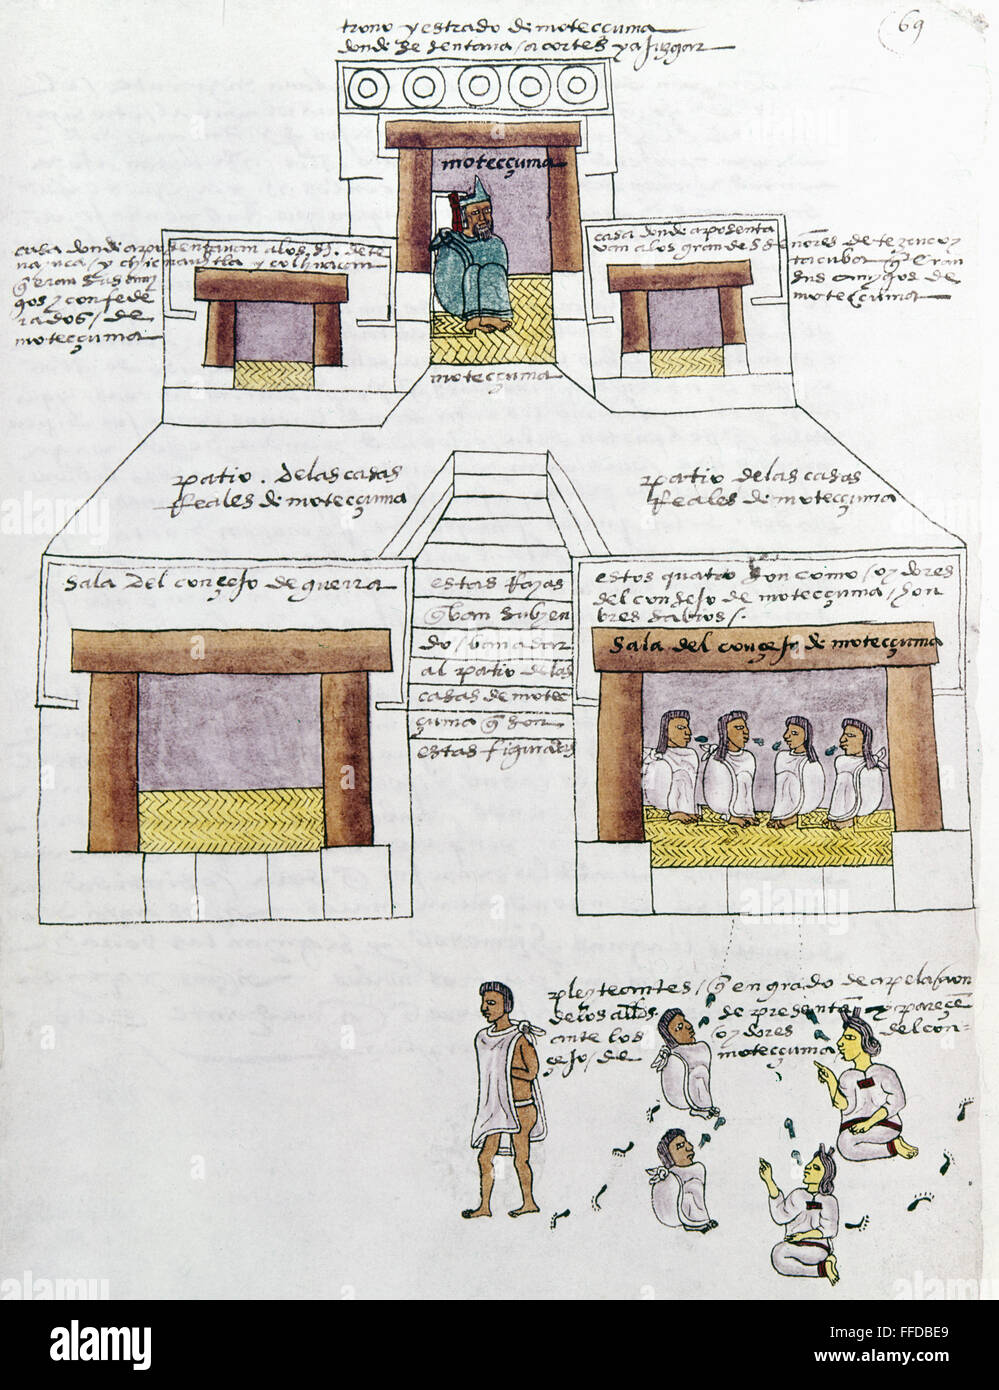 69
trono y estrado de moteccuma
donde se sentava / a cortes y a juzgar
moteccuma
casa donde aposentavan a los S. de te
nayuca / y chiconauhtla y colhuacan
q eran sus ami
gos y confede
rados / de
moteccuma
casa donde aposenta
van a los grandes señores de tezcuco y
tacuba q eran
sus amygos de
moteccuma
moteccuma
patio . de las casas
reales de moteccuma
patio de las casas
reales de moteccuma
sala del consejo de guerra
estas rayas
q van subyen
do / van a dar
al patio de las
casas de motec
çuma q son
estas figuradas
estos quatro son como / oydores
del consejo de moteccuma / hon
bres sabios /.
sala del consejo de moteccuma
pleyteantes / q en grado de apelacion
de los allos. se presentan y parecen
ante los / oydores del con-
sejo / de moteccuma
alamy
Image ID: FFDBE9
www.alamy.com